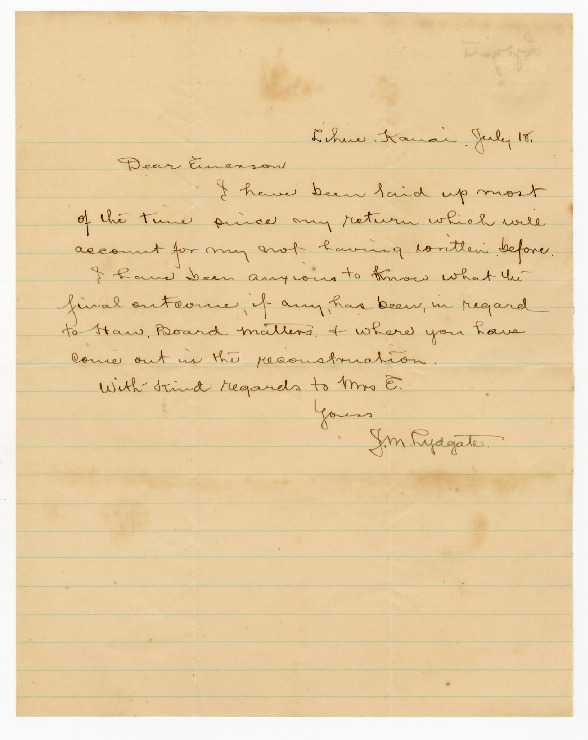 Lihue, Kauai. July 18.
Dear Emerson
I have been laid up most
of the time since my return which will
account for my not having written before.
I have been anxious to know what the
final outcome, if any, has been, in regard
to Haw. Board matters, & where you have
come out in the reconstruction.
With kind regards to Mrs E.
Yours
J. M. Lydgate.